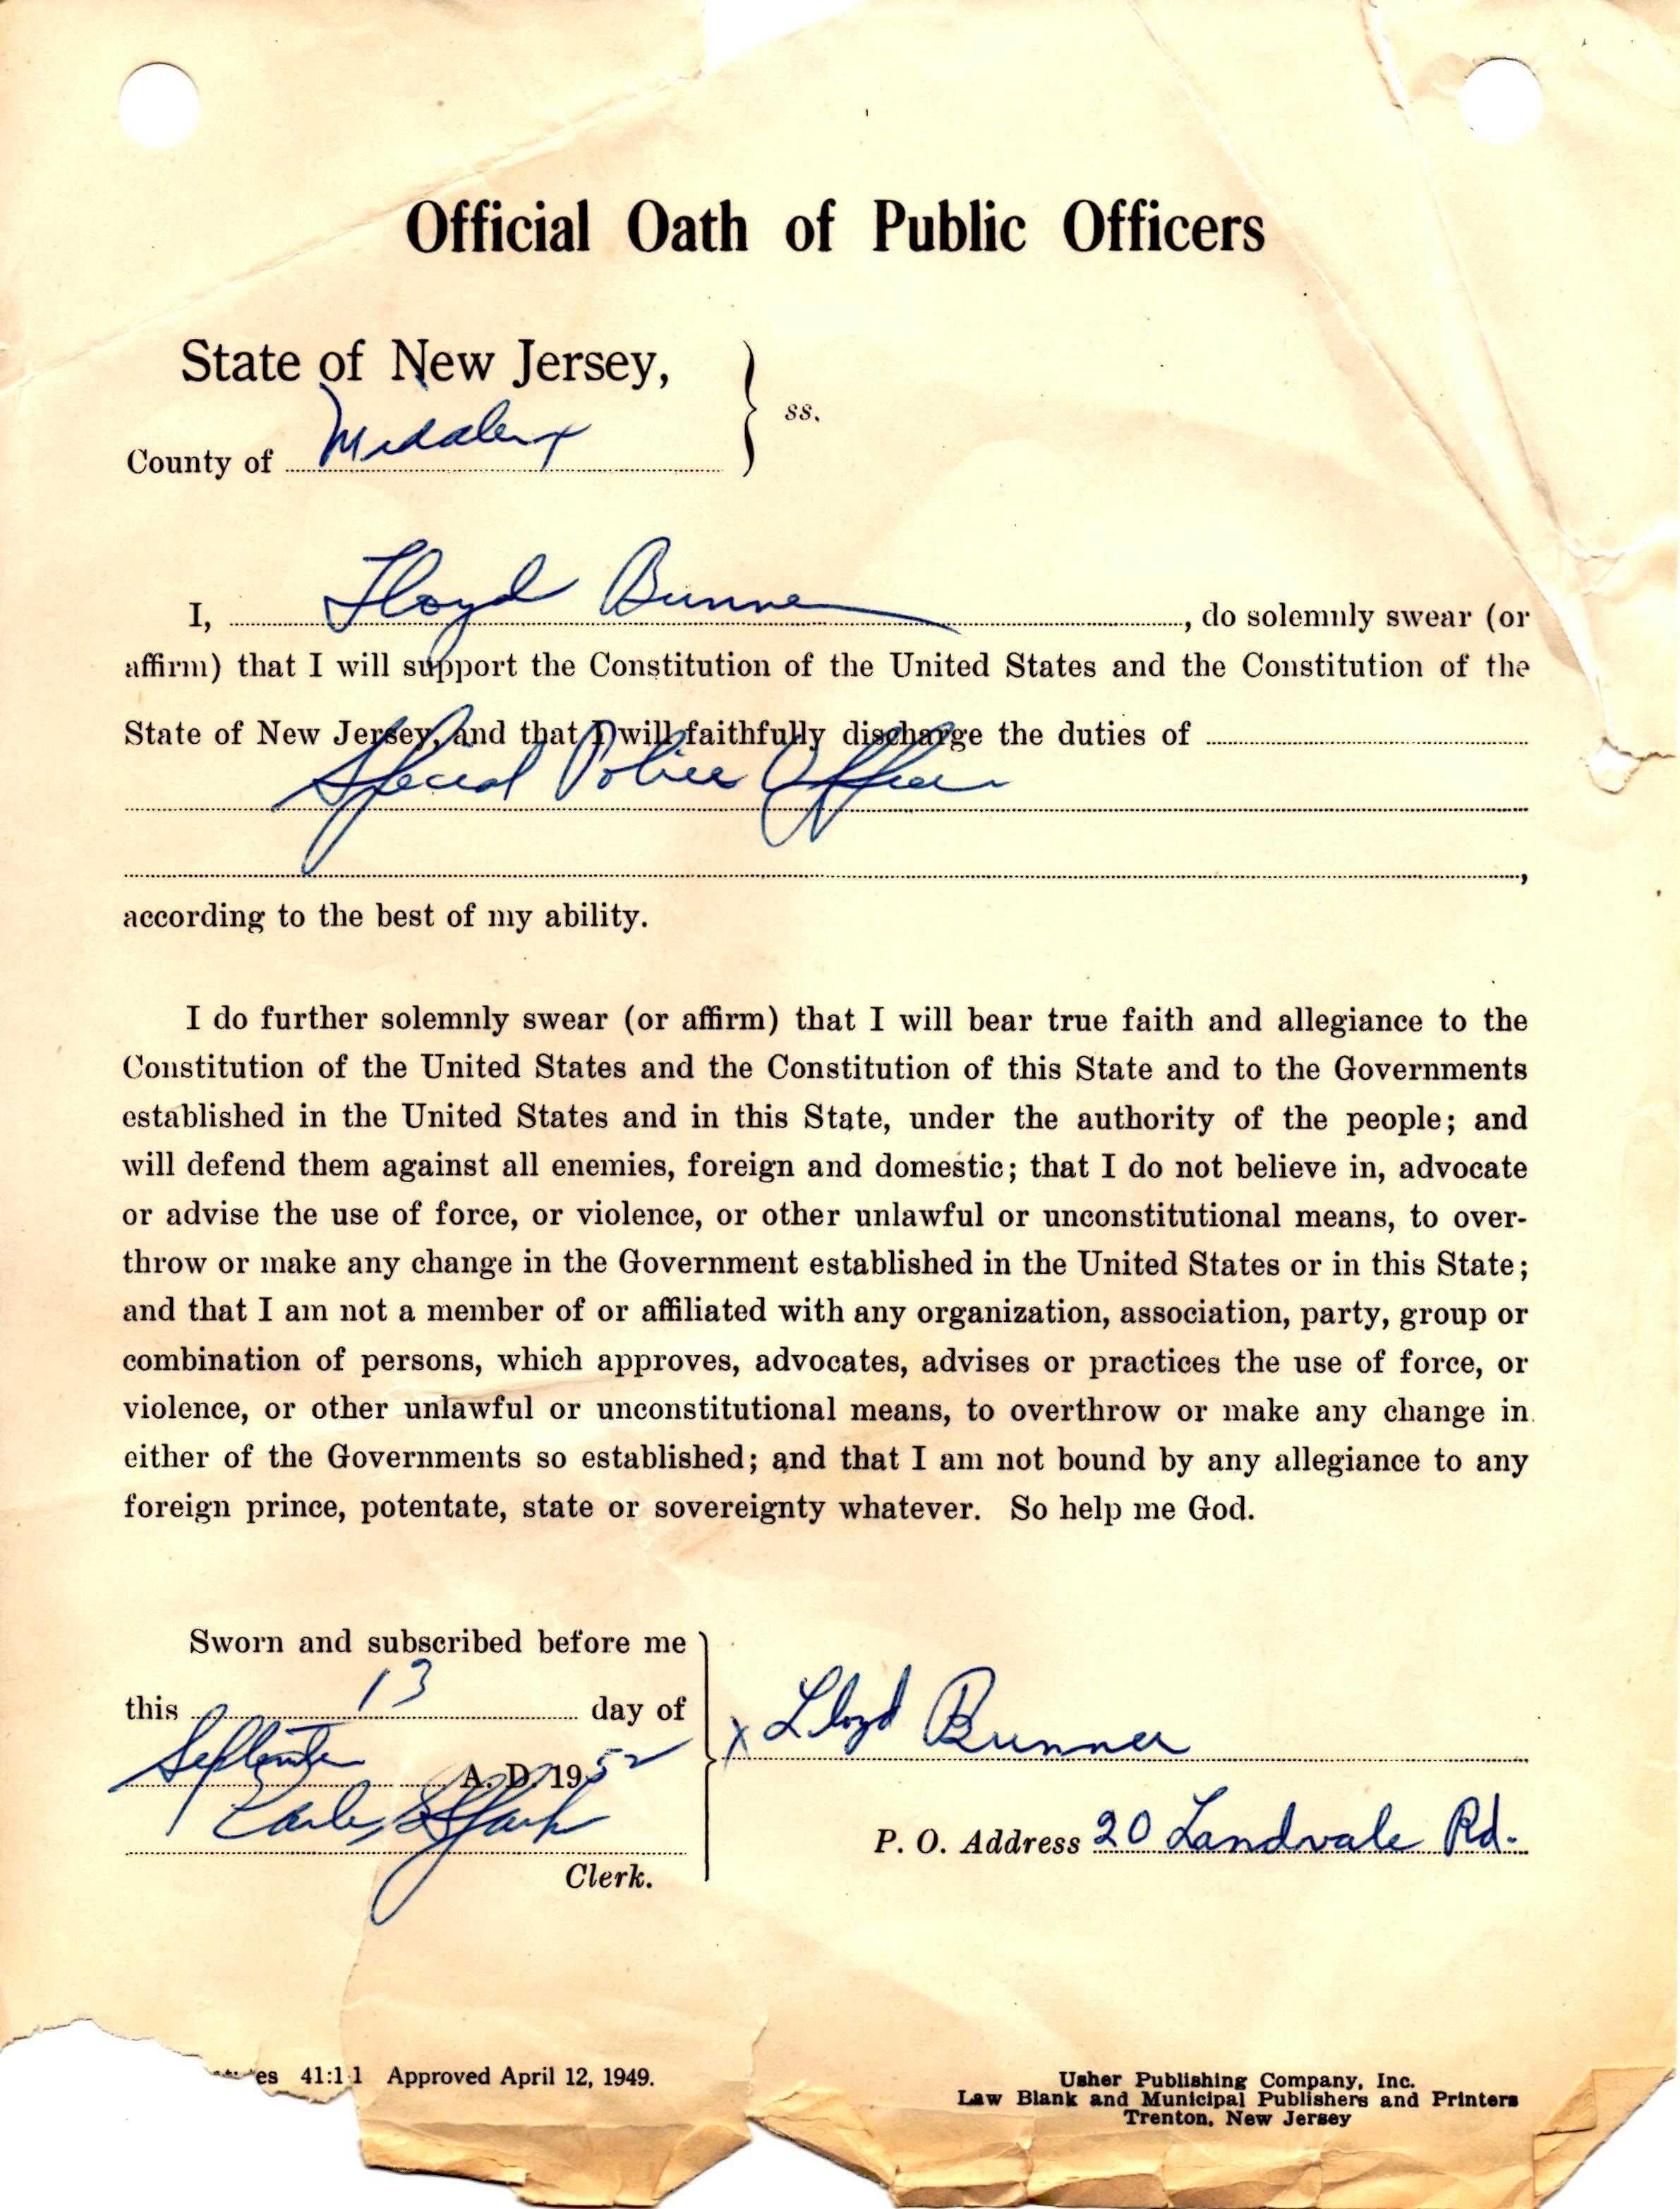 Official Oath of Public Officers
State of New Jersey,
ss.
County of Middlesex
I, Lloyd Bunner, do solemnly swear (or
affirm) that I will support the Constitution of the United States and the Constitution of the
State of New Jersey, and that I will faithfully discharge the duties of
Special Police Officer
,
according to the best of my ability.
I do further solemnly swear (or affirm) that I will bear true faith and allegiance to the
Constitution of the United States and the Constitution of this State and to the Governments
established in the United States and in this State, under the authority of the people; and
will defend them against all enemies, foreign and domestic; that I do not believe in, advocate
or advise the use of force, or violence, or other unlawful or unconstitutional means, to over-
throw or make any change in the Government established in the United States or in this State;
and that I am not a member of or affiliated with any organization, association, party, group or
combination of persons, which approves, advocates, advises or practices the use of force, or
violence, or other unlawful or unconstitutional means, to overthrow or make any change in
either of the Governments so established; and that I am not bound by any allegiance to any
foreign prince, potentate, state or sovereignty whatever. So help me God.
Sworn and subscribed before me
this 13 day of
September A. D. 1952
Clerk.
x Lloyd Bunner
P. O. Address 20 Landvale Rd.
41:1-1 Approved April 12, 1949.
Usher Publishing Company, Inc.
Law Blank and Municipal Publishers and Printers
Trenton, New Jersey